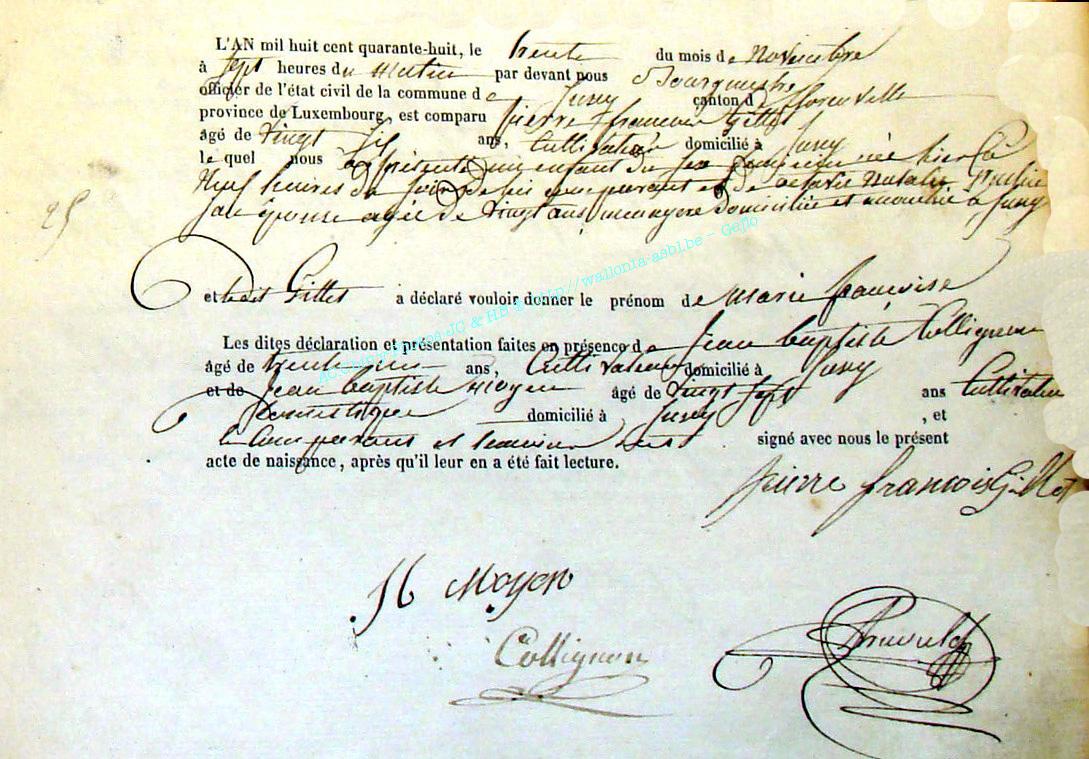 L'AN mil huit cent quarante-huit, le trente du mois de Novembre
à sept heures du matin par devant nous Bourgmestre
officier de l'état civil de la commune de Jusey canton de florenville
province de Luxembourg, est comparu pierre francois Gillet
âgé de vingt six ans, Cultivateur domicilié à Jusey
lequel nous a présenté un enfant du sexe née hier à
Neuf heures du soir de lui comparant et de Natalie
Son épouse agée de vingt ans menagere domiciliée et a Jusey
25
et ledit Gillet a déclaré vouloir donner le prénom de Marie françoise
Les dites déclaration et présentation faites en présence de Jean baptiste Collignon
âgé de trente ans, Cultivateur domicilié à Jusey
et de Jean baptiste Moyen âgé de vingt sept ans Cultivateur
domestique domicilié à Jusey , et
le Comparant et temoins ont signé avec nous le présent
acte de naissance, après qu'il leur en a été fait lecture.
pierre francois Gillet
Moyen
Collignon
JC & HB © http://wallonia-asbl.be - Geflo